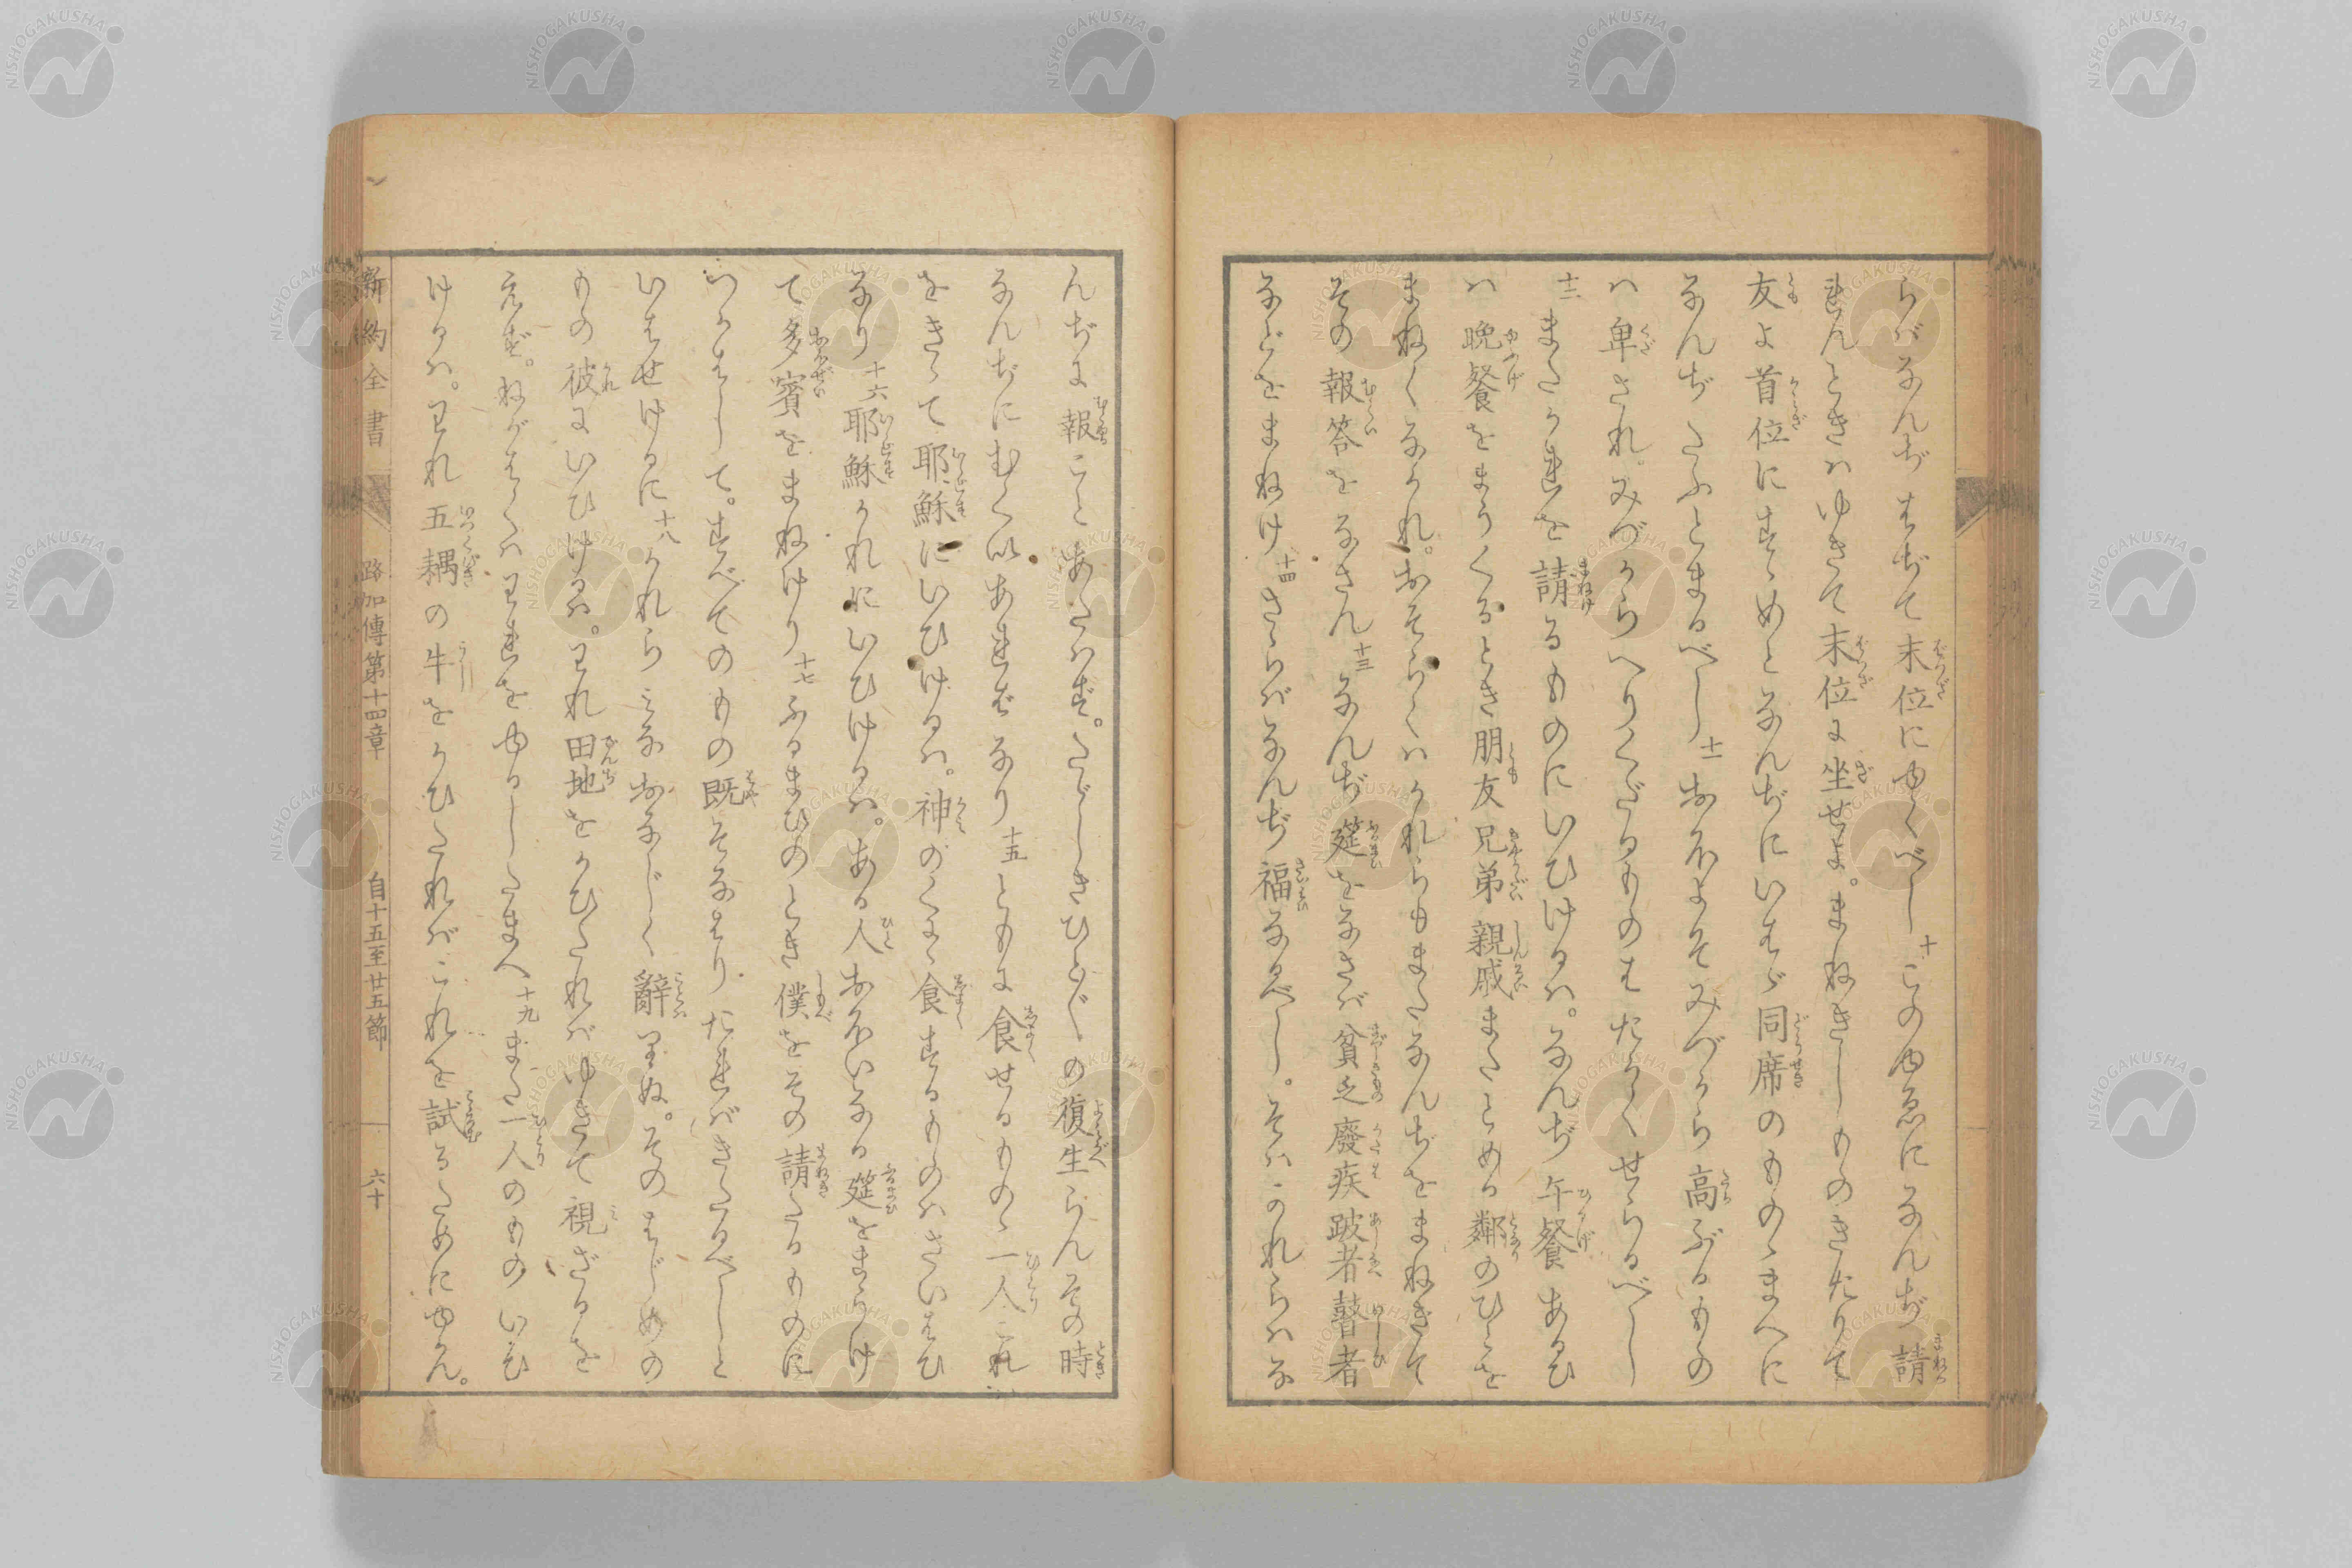 らバなんぢはぢて末位にゆくべし十このゆゑになんぢ請
れんときハゆきて末位に坐せよ。まねきしものきたりて
友よ首位にすゝめとなんぢにいはゞ同席のものゝまへに
なんぢたふとまるべし十一おほよそみづから高ぶるもの
ハ卑されみづからへりくだるものはたかくせらるべし
十二またかれを請るものにいひけるハ。なんぢ午餐あるひ
ハ晩餐をまうくるとき朋友兄弟親戚またとめる鄰のひとを
まねくなかれ。おそらくハかれらもまたなんぢをまねきて
その報答をなさん十三なんぢ筵をなさバ貧乏廢疾跛者瞽者
などをまねけ十四さらバなんぢ福なるべし。そハかれらハな
んぢに報ことあたハず。たゞしきひとゞの復生らんその時
なんぢにむくいあれバなり十五ともに食せるものゝ一人これ
をきゝて耶穌にいひけるハ。神のくにゝ食するものハさいはひ
なり十六耶穌かれにいひけるハ。ある人おほいなる筵をまうけ
て多賓をまねけり十七ふるまひのとき僕をその請たるものに
つかはして。すべてのもの既そなはりたれバきたるべしと
いはせけるに十八かれらみなおなじく辭りぬ。そのはじめの
もの彼にいひけるハ。われ田地をかひたれバゆきて視ざるを
えず。ねがはくハわれをゆるしたまへ十九また一人のものいひ
けるハ。われ五耦の牛をかひたれバこれを試るためにゆかん。
新約全書 路加傳第十四章 自十五至廿五節 六十
NISHOGAKUSHA